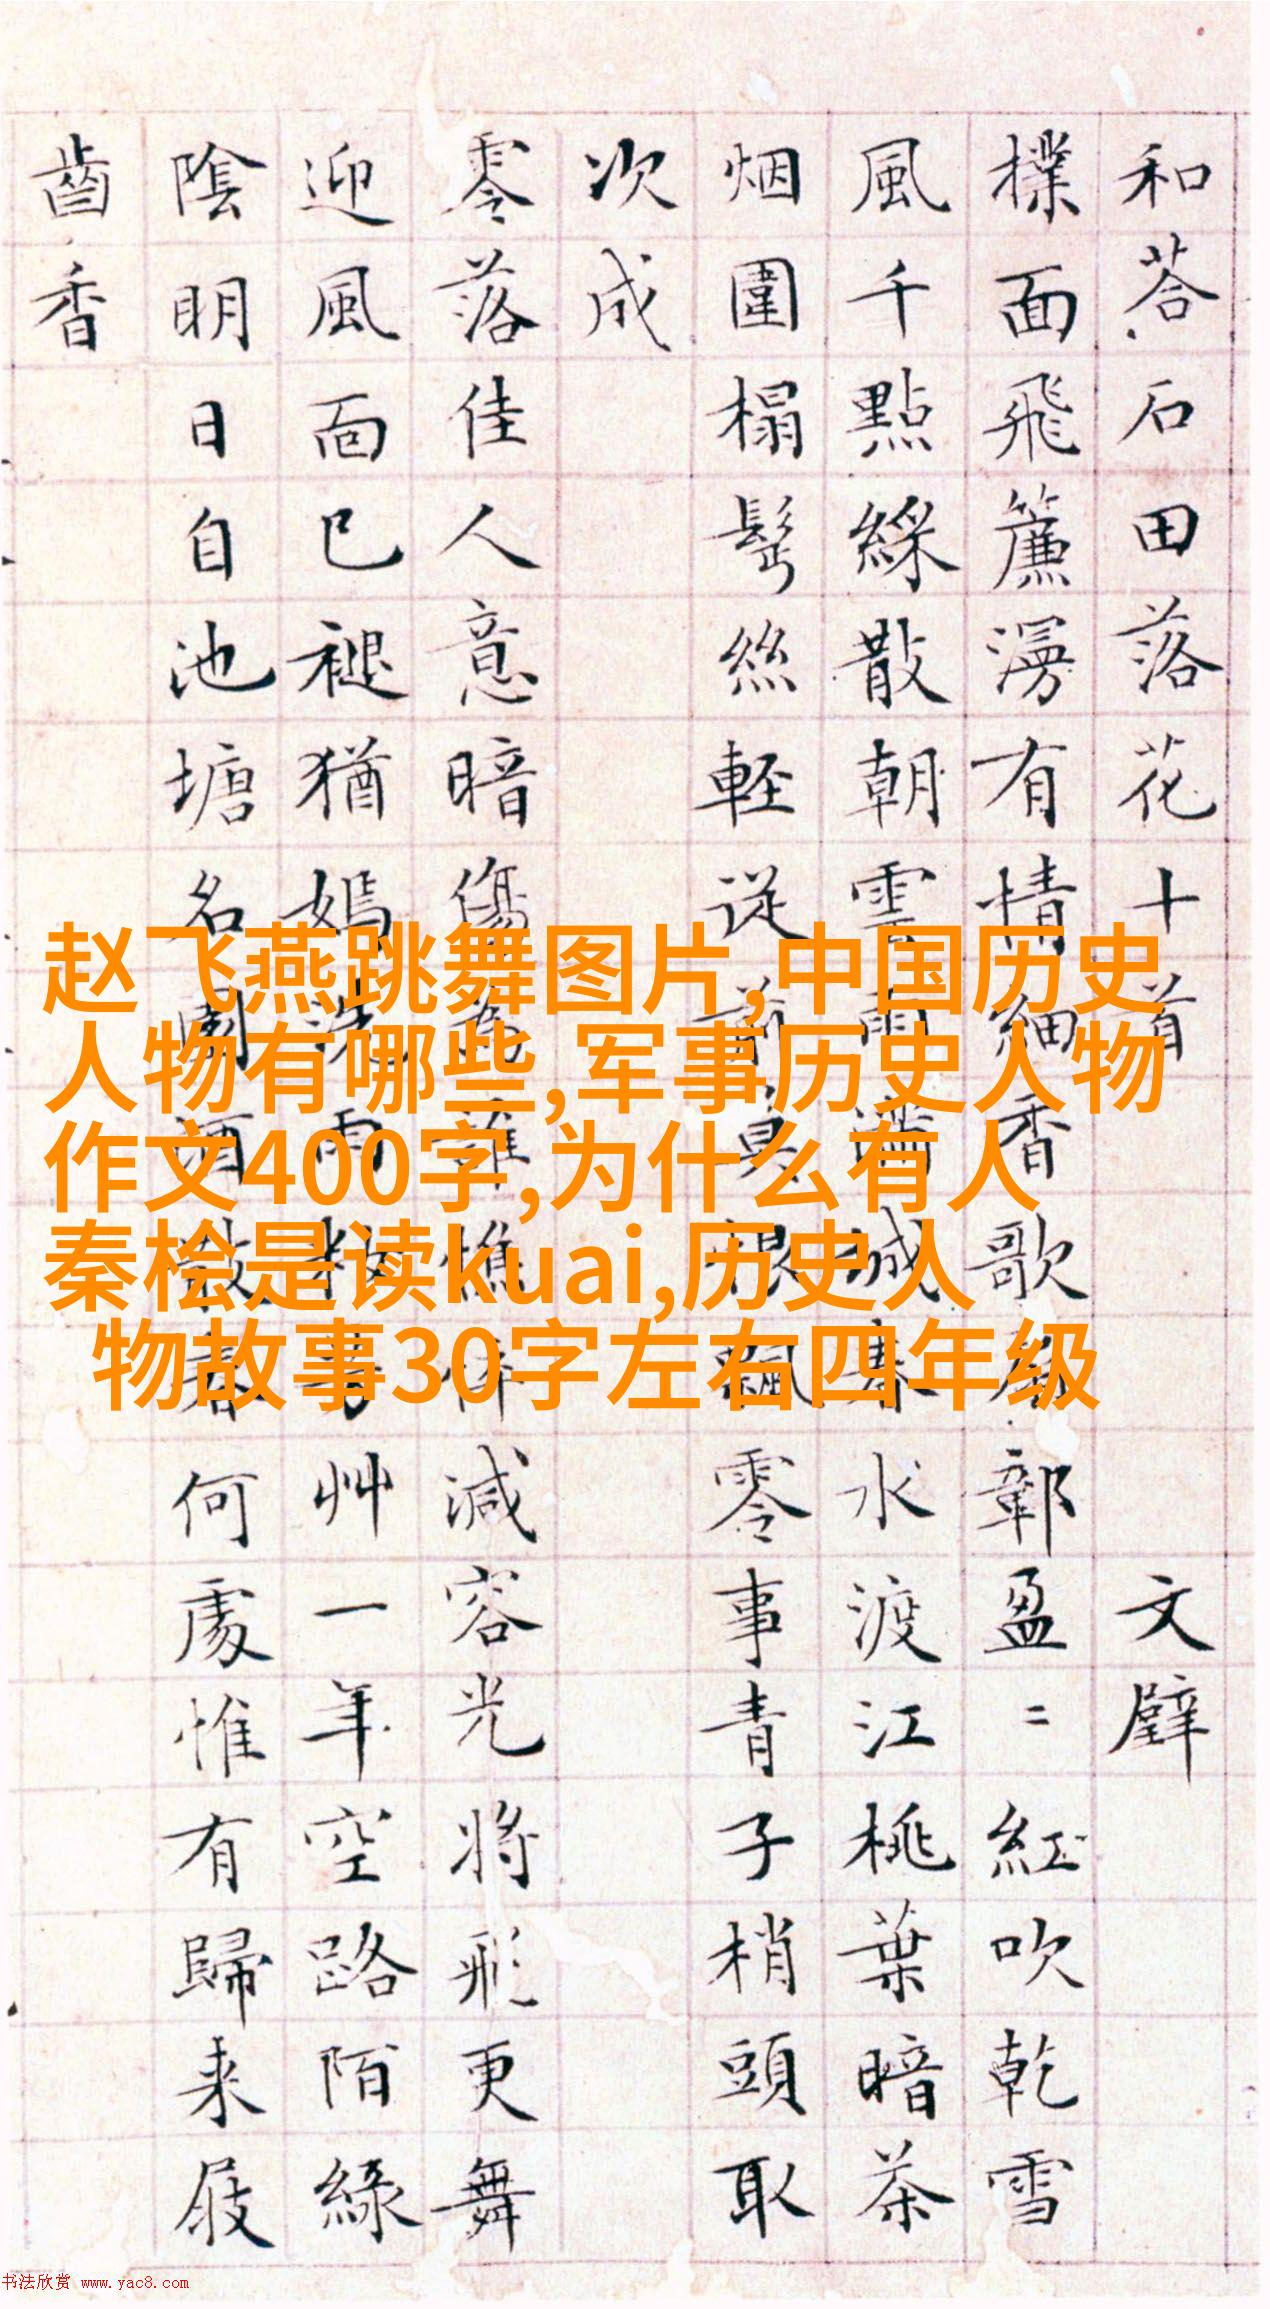 和荅石田落花十首 文壁
撲面飛簾漫有情細香歌扇鄣盈二紅吹乾雪
風千點綵散朝雲雨滿城春水渡江桃葉暗茶
烟圍榻鬂絲輕従前莫恨飄零事青子梢頭取
次成
零落佳人意暗傷為誰憔悴減容光將飛更舞
迎風面已褪猶嫣洗雨粧芳艸一年空路陌綠
陰明日自池塘名園酒散春何處惟有歸来屐
齒香
赵飞燕跳舞图片,中国历史
人物有哪些,军事历史人物
作文400字,为什么有人
秦桧是读kuai,历史人
物故事30字左右四年级
书法欣赏 www.yac8.com